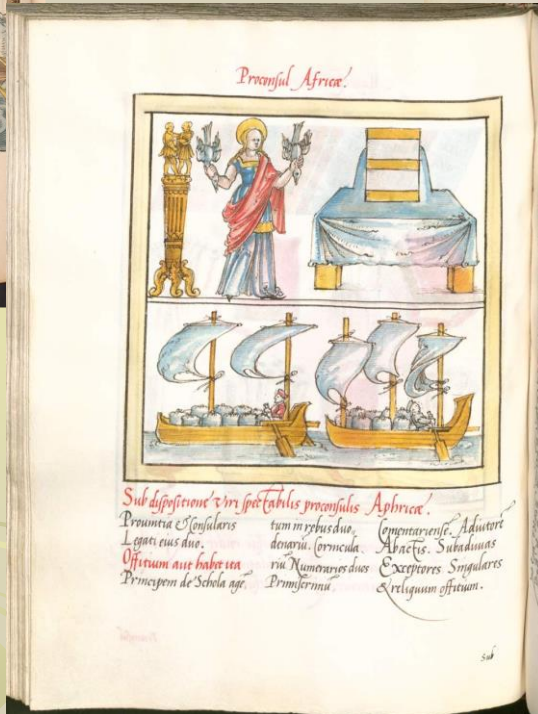 Proconsul Africæ.
Sub dispositione viri spectabilis proconsulis Aphricæ.
Prouintia & Consularis
Legati eius duo.
Offitium aut habet ita
Principem de Schola age
tum in rebus duo.
denariũ. Cornicula
riũ Numerarios duos
Primiscrinũ
Comentariensẽ. Adiutorẽ
Abactis. Subadiuuas
Exceptores Singulares
& reliquum offitium.
Sub